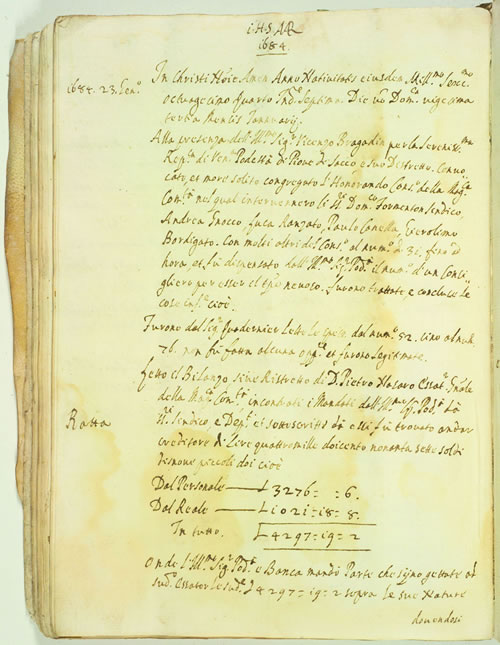 1684.
1684. 23. Gen.o
In Christi No͞ie Amen Anno Nativitatis eiusdem Mill.mo Sexc.mo
octuagesimo quarto Ind.e Septima. Die v.o Dom.ca vigesima
tertia Mensis Januarij.
Alla presenza dell'Ill.mo Sig.r Vicenzo Bragadin per la Seren.ma
Rep.ca di Ven.a Podestà di Piove di Sacco e suo Destretto. Convo
cato, et more solito congregato l'Honorando Cons.o della Mag.ca
Com.tà nel qual intervennero li Domenico Formenton Sindico,
Andrea Gnocco, Luca Ranzato, Paulo Canella, Gierolimo
Bordigato. Con molti altri del Cons.o al num.o di 31.
hora, et fù dispensato dall'Ill.mo Sig.r Pod.tà il num.o d'un Consi
gliero per esser il tempo nevoso. Furono trattate e concluse le
cose inf.te cioè.
Furono dal Sig.r Quadernier lette le spese dal num.o 52. sino al nu.o
76. non fù fatta alcuna opp.ne et furono legitimate.
Ratta
Letto il Bilanzo sive Ristretto di D. Pietro Nasaro Essat.r G͞nale
della Mag.ca Com.tà incontrati i Mandati dall'Ill.mo Sig.r Pod.tà
Sindico, e Dep.ti et sottoscritto da essi fù trovato andar
creditore di Lire quattromille doicento nonanta sette soldi
disnove piccoli doi cioè
Dal Personale — L 3276 = : 6.
Dal Reale — L 1021 = 18 = 8.
In tutto. L 4297 = 19 = 2
Onde l'Ill.mo Sig.r Pod.tà e Banca mandò Parte che sijno gettate al
sud.o Essator le sud.e L 4297 = 19 = 2 sopra le sue Nature
dovendosi